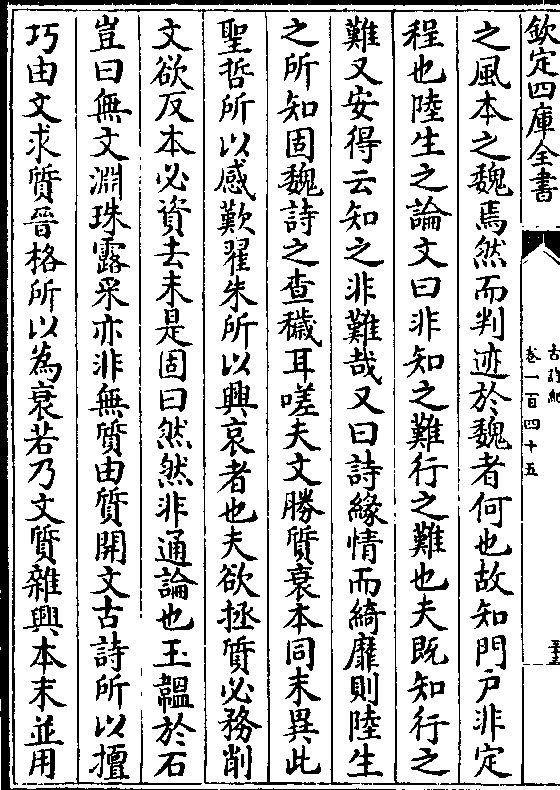 欽定四庫全書
古詩紀
卷一百四十五
之風本之魏焉然而判迹於魏者何也故知門戸非定
程也陸生之論文曰非知之難行之難也夫既知行之
難又安得云知之非難哉又曰詩緣情而綺靡則陸生
之所知固魏詩之查穢耳嗟夫文勝質衰本同末異此
聖哲所以感歎翟朱所以興哀者也夫欲拯質必務削
文欲反本必資去末是固曰然然非通論也玉韞於石
豈曰無文淵珠露采亦非無質由質開文古詩所以擅
巧由文求質晉格所以為衰若乃文質雜興本末並用